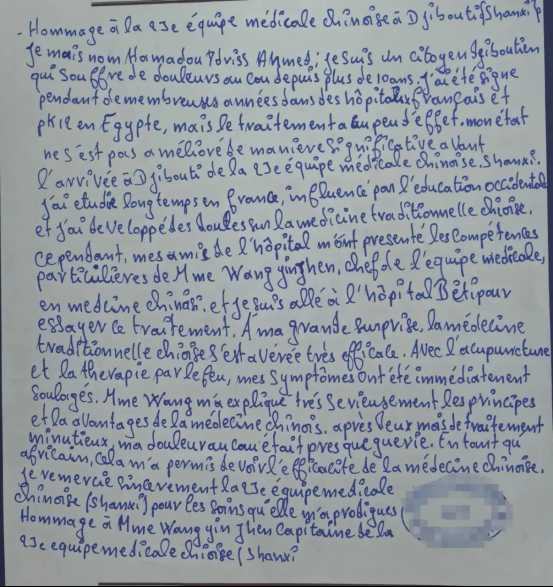 - Hommage à la 23e équipe médicale chinoise à Djibouti (Shanxi)
Je mais nom Hamadou Idriss Ahmed; je suis un citoyen djiboutien
qui souffre de douleurs au cou depuis plus de 10 ans. J'ai été signe
pendant de membreuses années dans des hôpitaux français et
PK12 en Egypte, mais le traitement a eu peu d'effet. mon état
ne s'est pas a mélioré de manière significative avant
l'arrivée à Djibouti de la 23e équipe médicale chinoise. Shanxi.
J'ai etudié longtemps en france, influencé par l'éducation occidental
et j'ai developpé des doutes sur la medicine traditionnelle chioise.
cependant, mes amis de l'hôpital m'ont presenté les compétences
particulières de Mme Wang yinghen, chef de l'équipe medicale,
en medcine chinois. et je suis allé à l'hôpital Bétipour
essayer ce traitement. A ma grande surprise, la médecine
traditionnelle chioise s'est avérée très efficale. Avec l'acupuncture
et la thérapie par le feu, mes symptômes ont été immédiatenent
soulagés. Mme Wang m'a expliqué très serieusement les principes
et la avantages de la médecine chinois. après deux mois de traitement
minutieux, ma douleur au cou était pres que guerie. En tant qu'
africain, cela m'a permis de voir l'efficacité de la médecine chinoise.
je remercie sincerement la 23e équipe medicale
chinoise (Shanxi) pour les soins qu'elle m'a prodigués
Hommage à Mme Wang yin Zhen capitaine de la
23e equipe medicale chioise (Shanxi